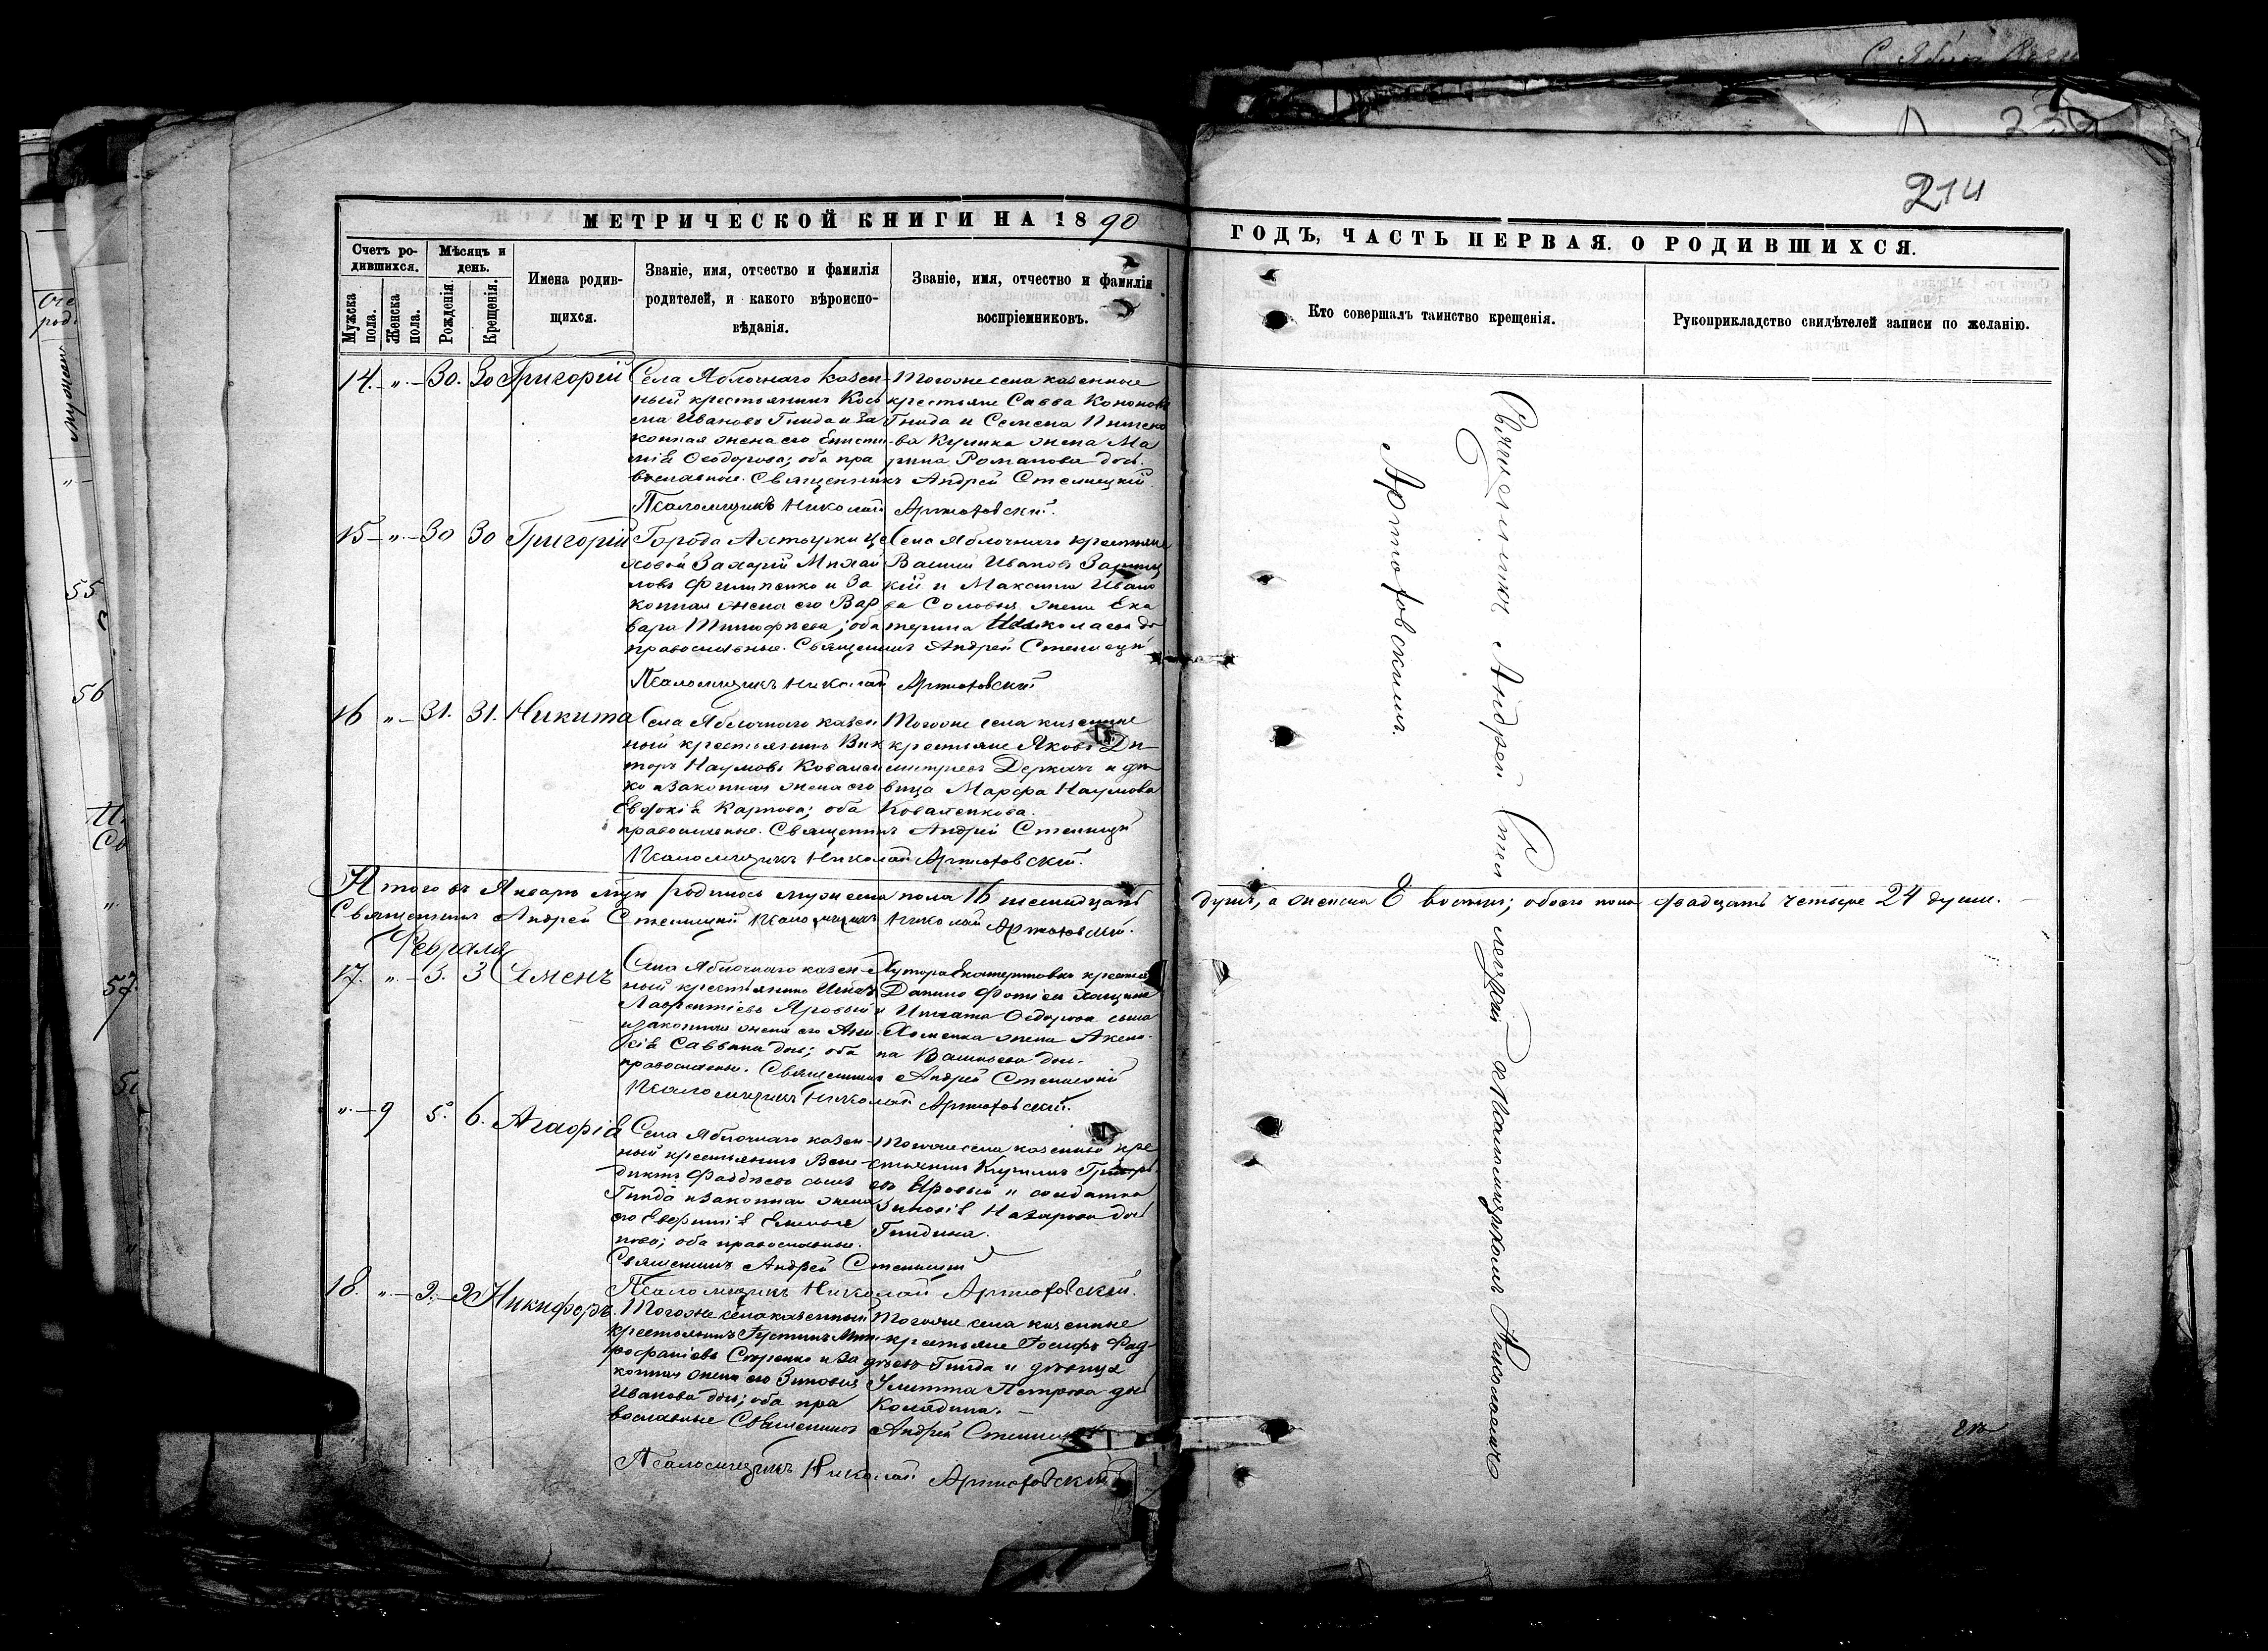 214
МЕТРИЧЕСКОЙ КНИГИ НА 1890
ГОДЪ, ЧАСТЬ ПЕРВАЯ. О РОДИВШИХСЯ.
Счетъ ро-
дившихся.
Мужска
пола.
Женска
пола.
Мѣсяцъ и
день.
Рожденія.
Крещенія.
Имена родив-
щихся.
Званіе, имя, отчество и фамилія
родителей, и какого вѣроиспо-
вѣданія.
Званіе, имя, отчество и фамилія
воспріемниковъ.
Кто совершалъ таинство крещенія.
Рукоприкладство свидѣтелей записи по желанію.
14. „ 30. 30 Григорій
Села Яблочнаго казен-
ный крестьянинъ Кось
ма Ивановъ Гнида и за
конная жена его Еписти
мія Ѳеодорова; оба пра
вославные. Священникъ Андрей Стеллецкій
Псаломщикъ Николай Артюховскій.
Тогоже села казенные
крестьяне Савва Кононовъ
Гнида и Семена
ва Кулика жена Ма
рина Романова дочь.
15 „ 30 30 Григорій
Города Ахтырки це
ховой Захарій Михай
ловъ Филипенко и за
конная жена его Вар
вара Тимофѣева; оба
православные. Священникъ Андрей Стеллецкій
Псаломщикъ Николай Артюховскій
Села Яблочнаго крестьяне
Василій Ивановъ
кій и Максима Ивано
ва Соловья жена Ека
терина Николаева до
16 „ 31. 31. Никита
Села Яблочнаго казен
ный крестьянинъ Вик
торъ Наумовъ Ковален
ко и законная жена его
Евдокія Карпова; оба
православные. Священникъ Андрей Стеллецкій
Псаломщикъ Николай Артюховскій.
Тогоже села казенные
крестьяне Яковъ Ди-
митріевъ Деркачъ и дѣ
вица Марфа Наумова
Коваленкова.
Итого въ Январѣ мцѣ родилось мужеска пола 16 шестнадцать душъ, а женска 8 восемь; обоего пола двадцать четыре 24 души.
Священникъ Андрей Стеллецкій Псаломщикъ Николай Артюховскій.
Февраля
17. „ 3. 3 Семенъ
Села Яблочнаго казен-
ный крестьянинъ
Лаврентіевъ Яровый
и законная жена его
кія Саввина дочь; оба
православные. Священникъ Андрей Стеллецкій
Псаломщикъ Николай Артюховскій.
Хутора Екатериновки
Данило Фотіевъ
и Игната Ѳедорова сына
Хоменка жена Аксе-
на Васильева дочь.
„ 9 5. 6. Агафія
Села Яблочнаго казен
ный крестьянинъ Вене
диктъ Фаддѣевъ сынъ
Гнида и законная жена
его Евфимія Емелья
нова; оба православные.
Священникъ Андрей Стеллецкій
Псаломщикъ Николай Артюховскій.
Тогоже села казенный кре
стьянинъ Кириллъ Григорь
евъ Яровый и солдатка
Зиновія Назарова дочь
Гнидина.
18. „ Никифоръ
Тогоже села казенный
крестьянинъ Іустинъ Мит
рофаніевъ и за
конная жена его Зиновія
Иванова дочь; оба пра
вославные Священникъ Андрей Стеллецкій
Псаломщикъ Николай Артюховскій
Тогоже села казенные
крестьяне Іосифъ Фад-
дѣевъ Гнида и дѣвица
Улитта Петрова дочь
Колядина.
Священникъ Андрей Стеллецкій съ Псаломщикомъ Николаемъ
Артюховскимъ.